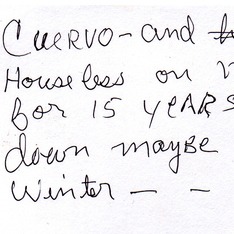 Cuervo - and
Houseless on
for 15 years
down maybe
winter — -